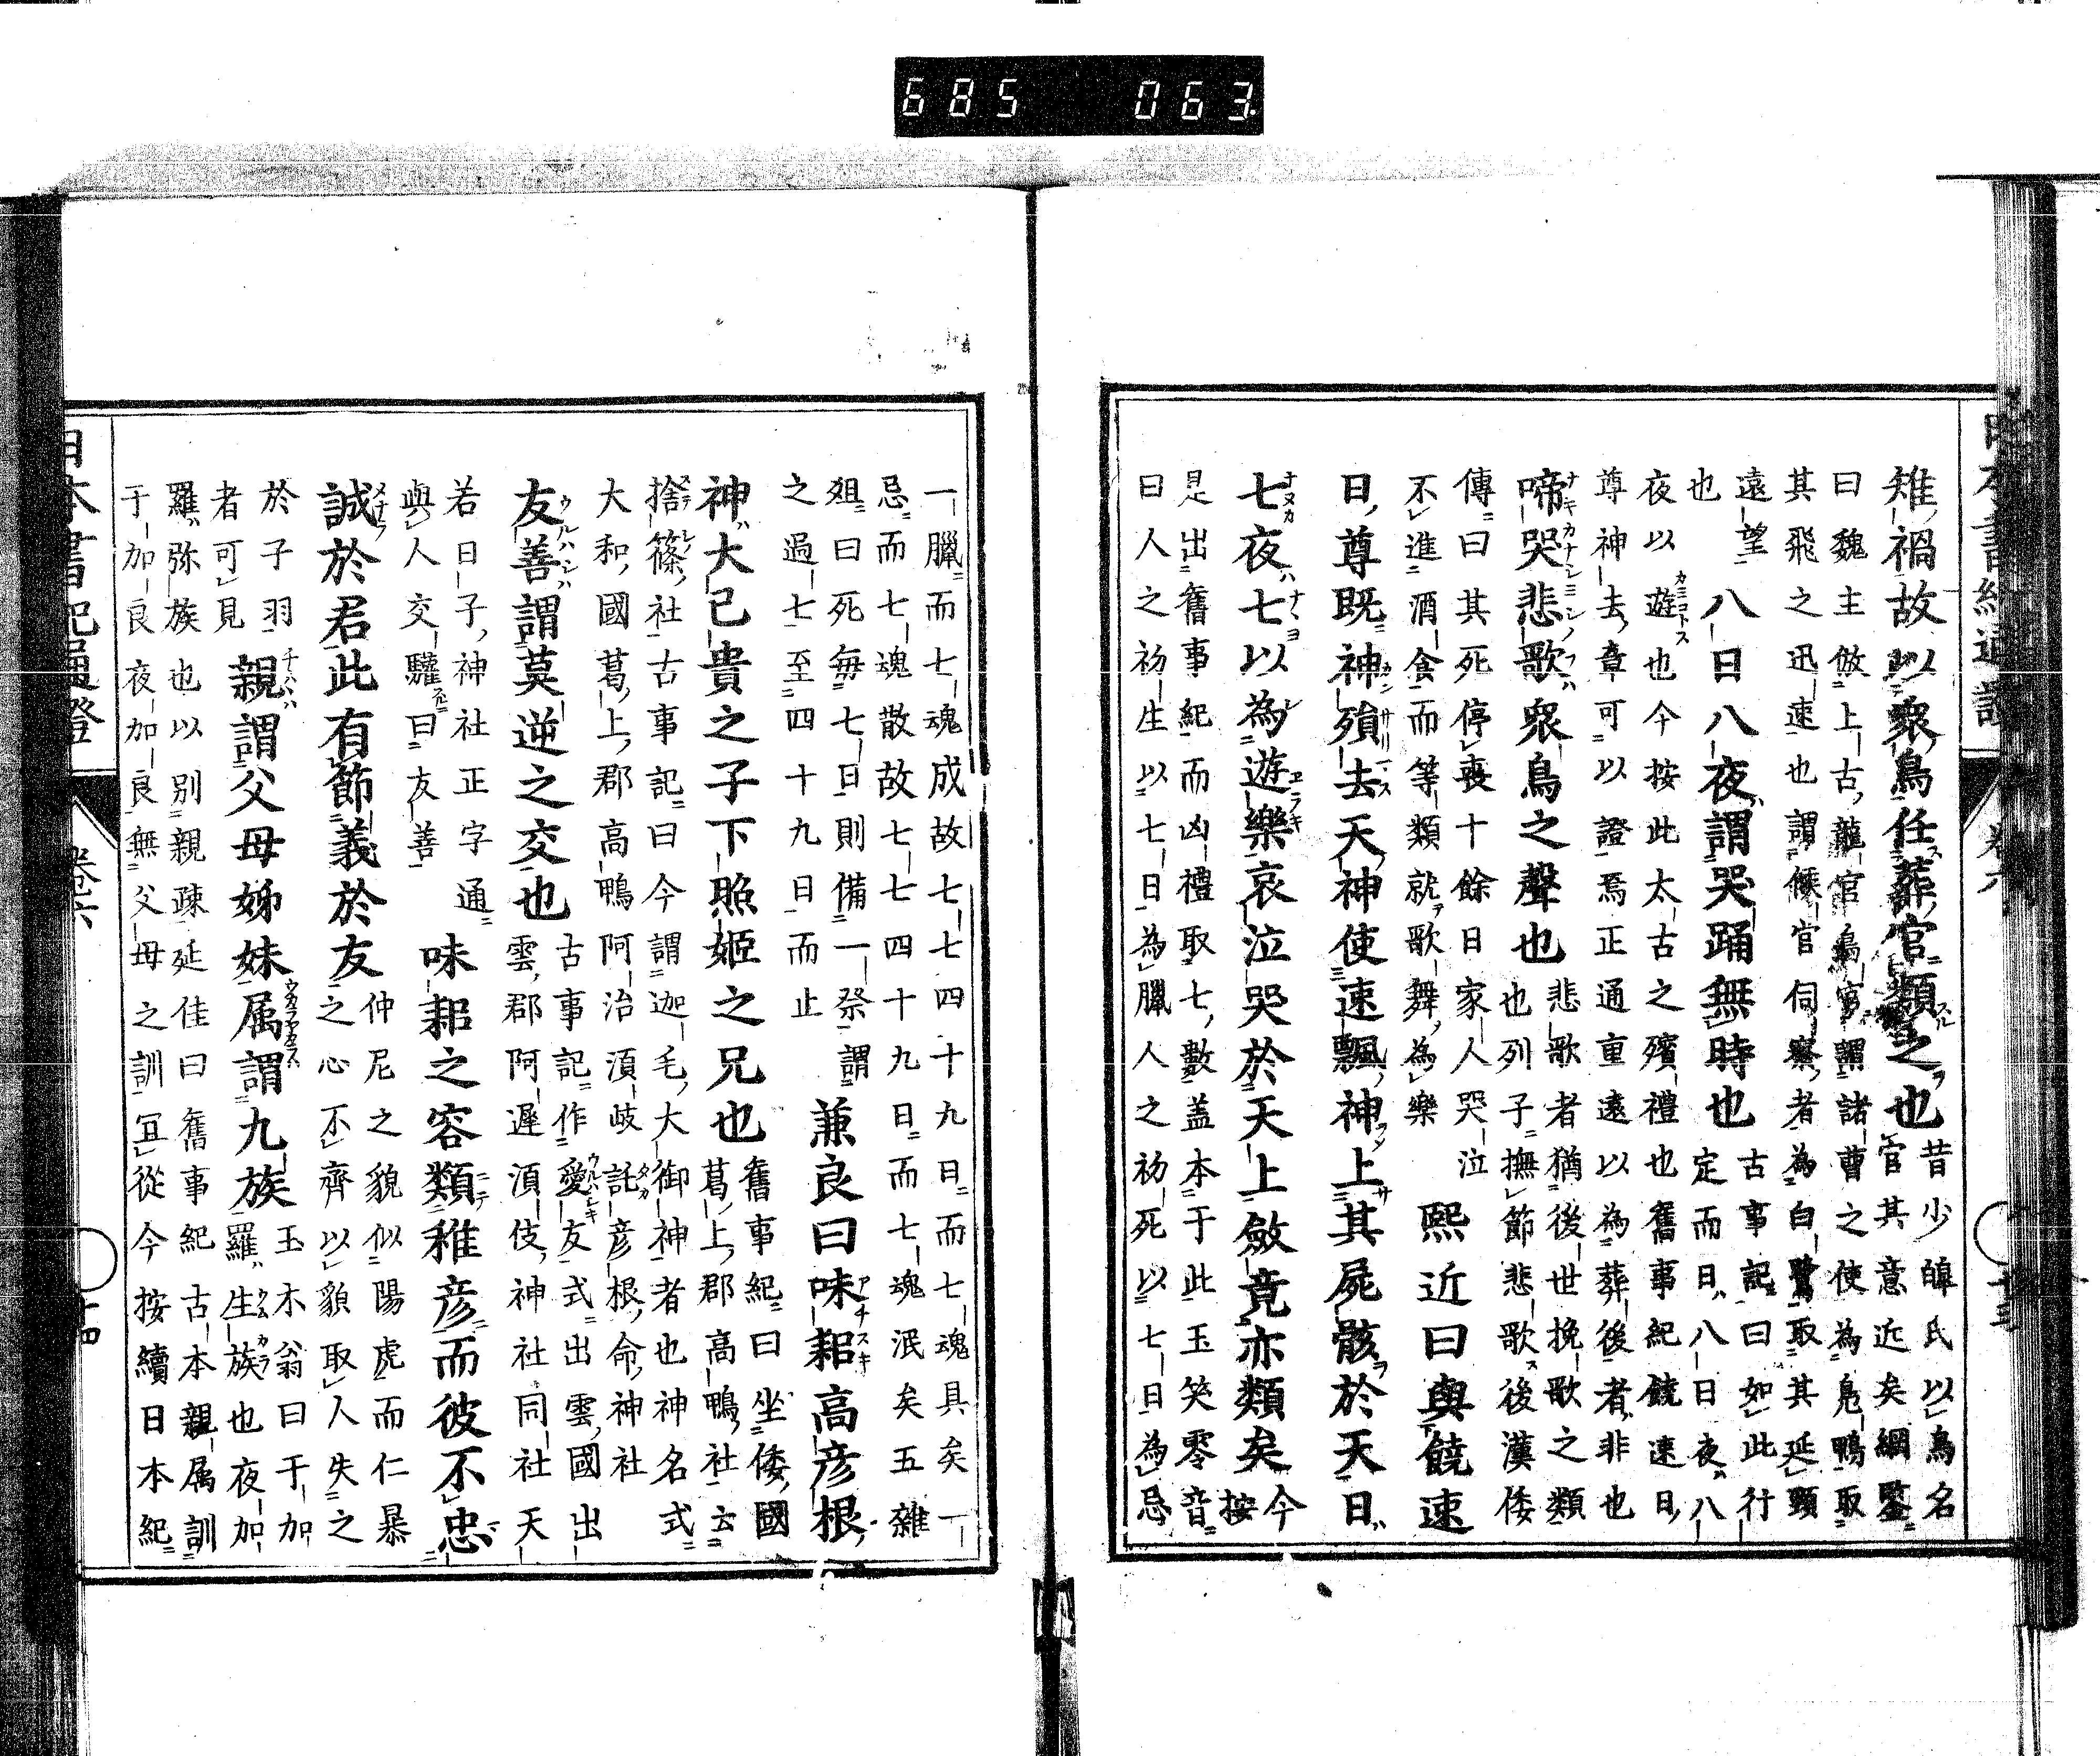 685 063
日本書紀通證 卷六 廿三
雉禍故以衆鳥任葬官類之也昔少皥氏以鳥名
官其意近矣綱鑒
曰魏主倣上古龍官鳥官謂諸曹之使為鳧鴨取
其飛之迅速也謂候官伺察者為白鷺取其延頸
遠望
也 八日八夜謂哭踊無時也古事記曰如此行
定而日八日夜八
夜以遊也今按此太古之殯禮也舊事紀饒速日
尊神去章可以證焉正通重遠以為葬後者非也
啼哭悲歌衆鳥之聲也悲歌者猶後世挽歌之類
也列子撫節悲歌後漢倭
傳曰其死停喪十餘日家人哭泣
不進酒食而等類就歌舞為樂 熙近曰與饒速
日尊既神殞去天神使速飄神上其屍骸於天日
七夜七以為遊樂哀泣哭於天上斂竟亦類矣今
按
是出舊事紀而凶禮取七數盖本于此玉笑零音
曰人之初生以七日為臘人之初死以七日為忌
一臘而七魂成故七七四十九日而七魂具矣一
忌而七魂散故七七四十九日而七魂泯矣五雜
俎曰死毎七日則備一祭謂
之過七至四十九日而止 兼良曰味耜高彦根
神大己貴之子下照姫之兄也舊事紀曰坐倭國
葛上郡高鴨社云
捨篠社古事記曰今謂迦毛大御神者也神名式
大和國葛上郡高鴨阿治湏岐託彦根命神社
友善謂莫逆之交也古事記作愛友式出雲國出
雲郡阿遲湏伎神社同社天
若日子神社正字通
與人交驩曰友善 味耜之容類稚彦而彼不忠
誠於君此有節義於友仲尼之貌似陽虎而仁暴
之心不齊以貌取人失之
於子羽
者可見 親謂父母姊妹属謂九族玉木翁曰于加
羅生族也夜加
羅弥族也以別親疎延佳曰舊事紀古本親属訓
于加良夜加良無父母之訓冝從今按續日本紀
日本書紀通證 卷六 廿四